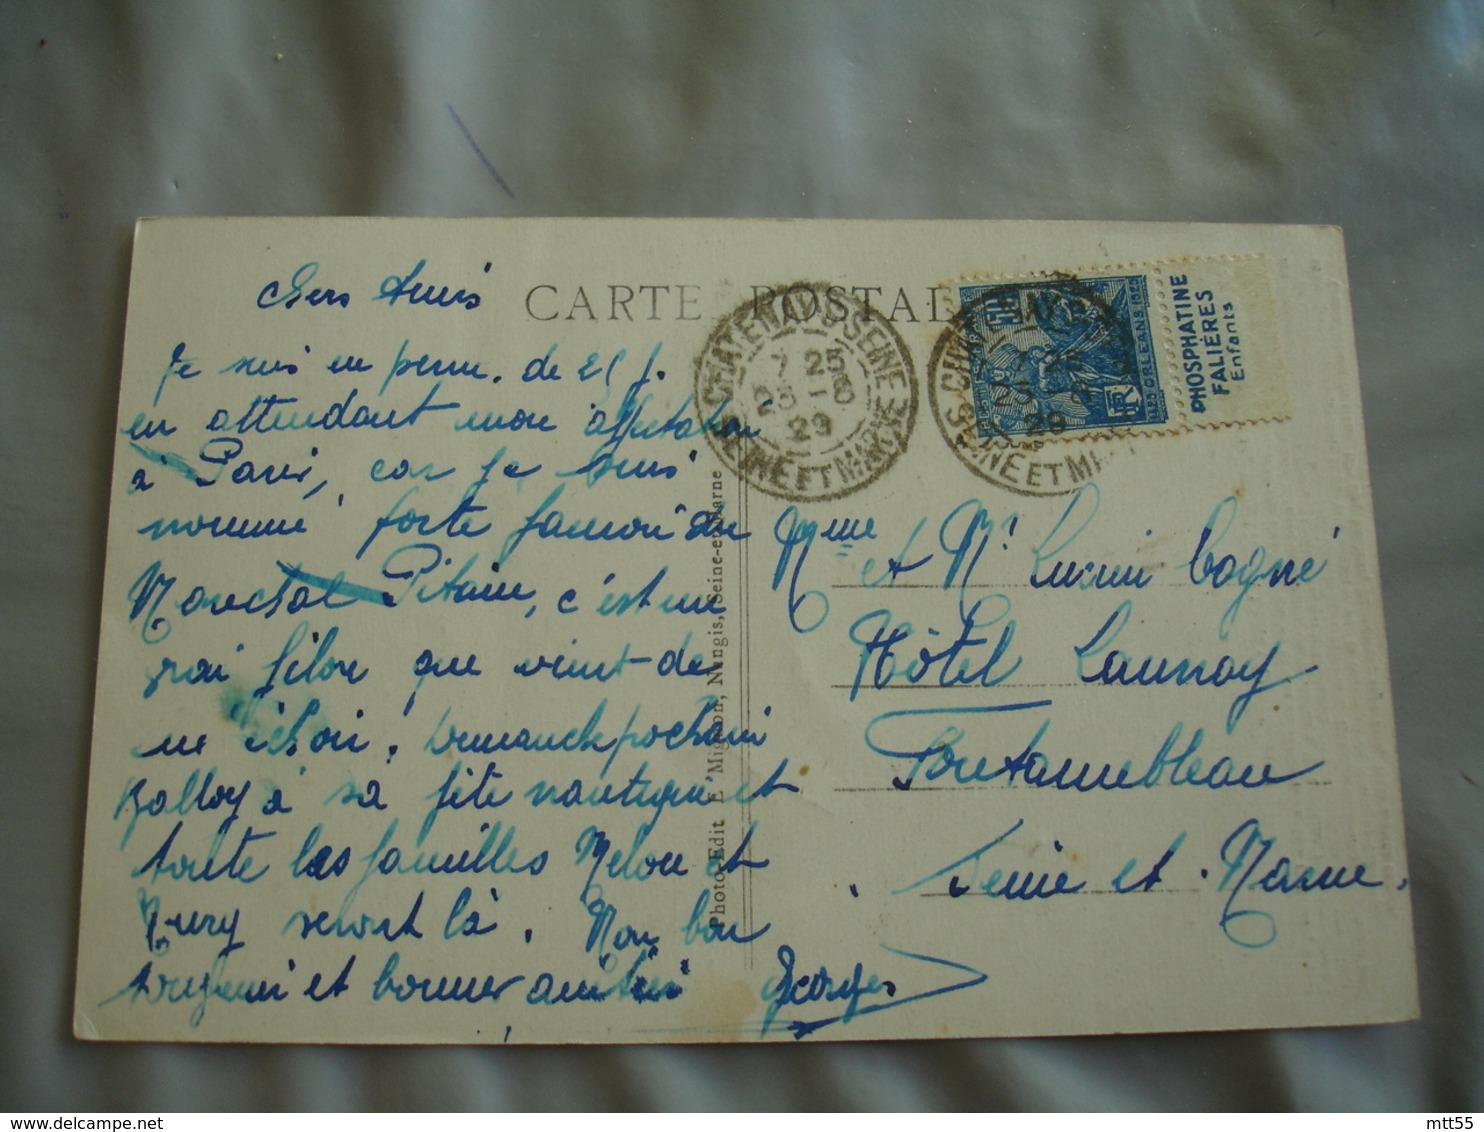 Chers Amis
CARTE POSTALE
Je suis en perm. de 25 j.
en attendant mon affectation
à Paris, car je suis
nommé
Marechal Pétain, c'est un
vrai filon que vient de
m'échoir! Dimanche prochain
Balloy à sa fête nautique et
toute les familles Melon et
seront là. Mon bon
souvenir et bonnes amitiés Georges
CHATENAY S SEINE
25
25-8
29
SEINE ET MARNE
ORLÉANS
RF
PHOSPHATINE
FALIÈRES
Enfants
Photo-Edit E Mignon, Nangis, Seine-et-Marne
Mme et Mr Lucien Cogné
Hôtel Launoy
Fontainebleau
Seine et Marne.
mtt55